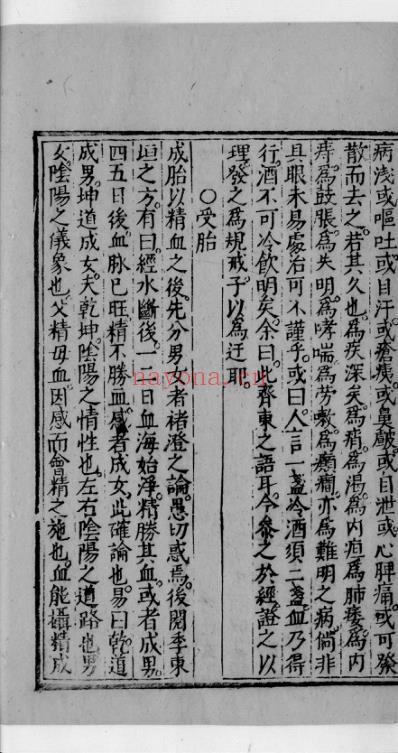 病淺或嘔吐或自汗或瘡痍或鼻皶或自泄或心脾痛或可發
散而去之若其久也為疾深矣為消為渴為內疽為肺痿為內
痔為鼓脹為失明為哮喘為勞嗽為癲癇亦為難明之病倘非
具眼未易處治可不謹乎或曰人言一盞冷酒須二盞血乃得
行酒不可冷飲明矣余曰此齊東之語耳今參之於經證之以
理發之為規戒子以為迂耶
○受胎
成胎以精血之後先分男女者褚澄之論愚切惑焉後閱李東
垣之方有曰經水斷後一二日血海始淨精勝其血或者成男
四五日後血脉已旺精不勝血感者成女此確論也易曰乾道
成男坤道成女夫乾坤陰陽之情性也左右陰陽之道路也男
女陰陽之儀象也父精母血因感而會精之施也血能攝精成
nayona.ru